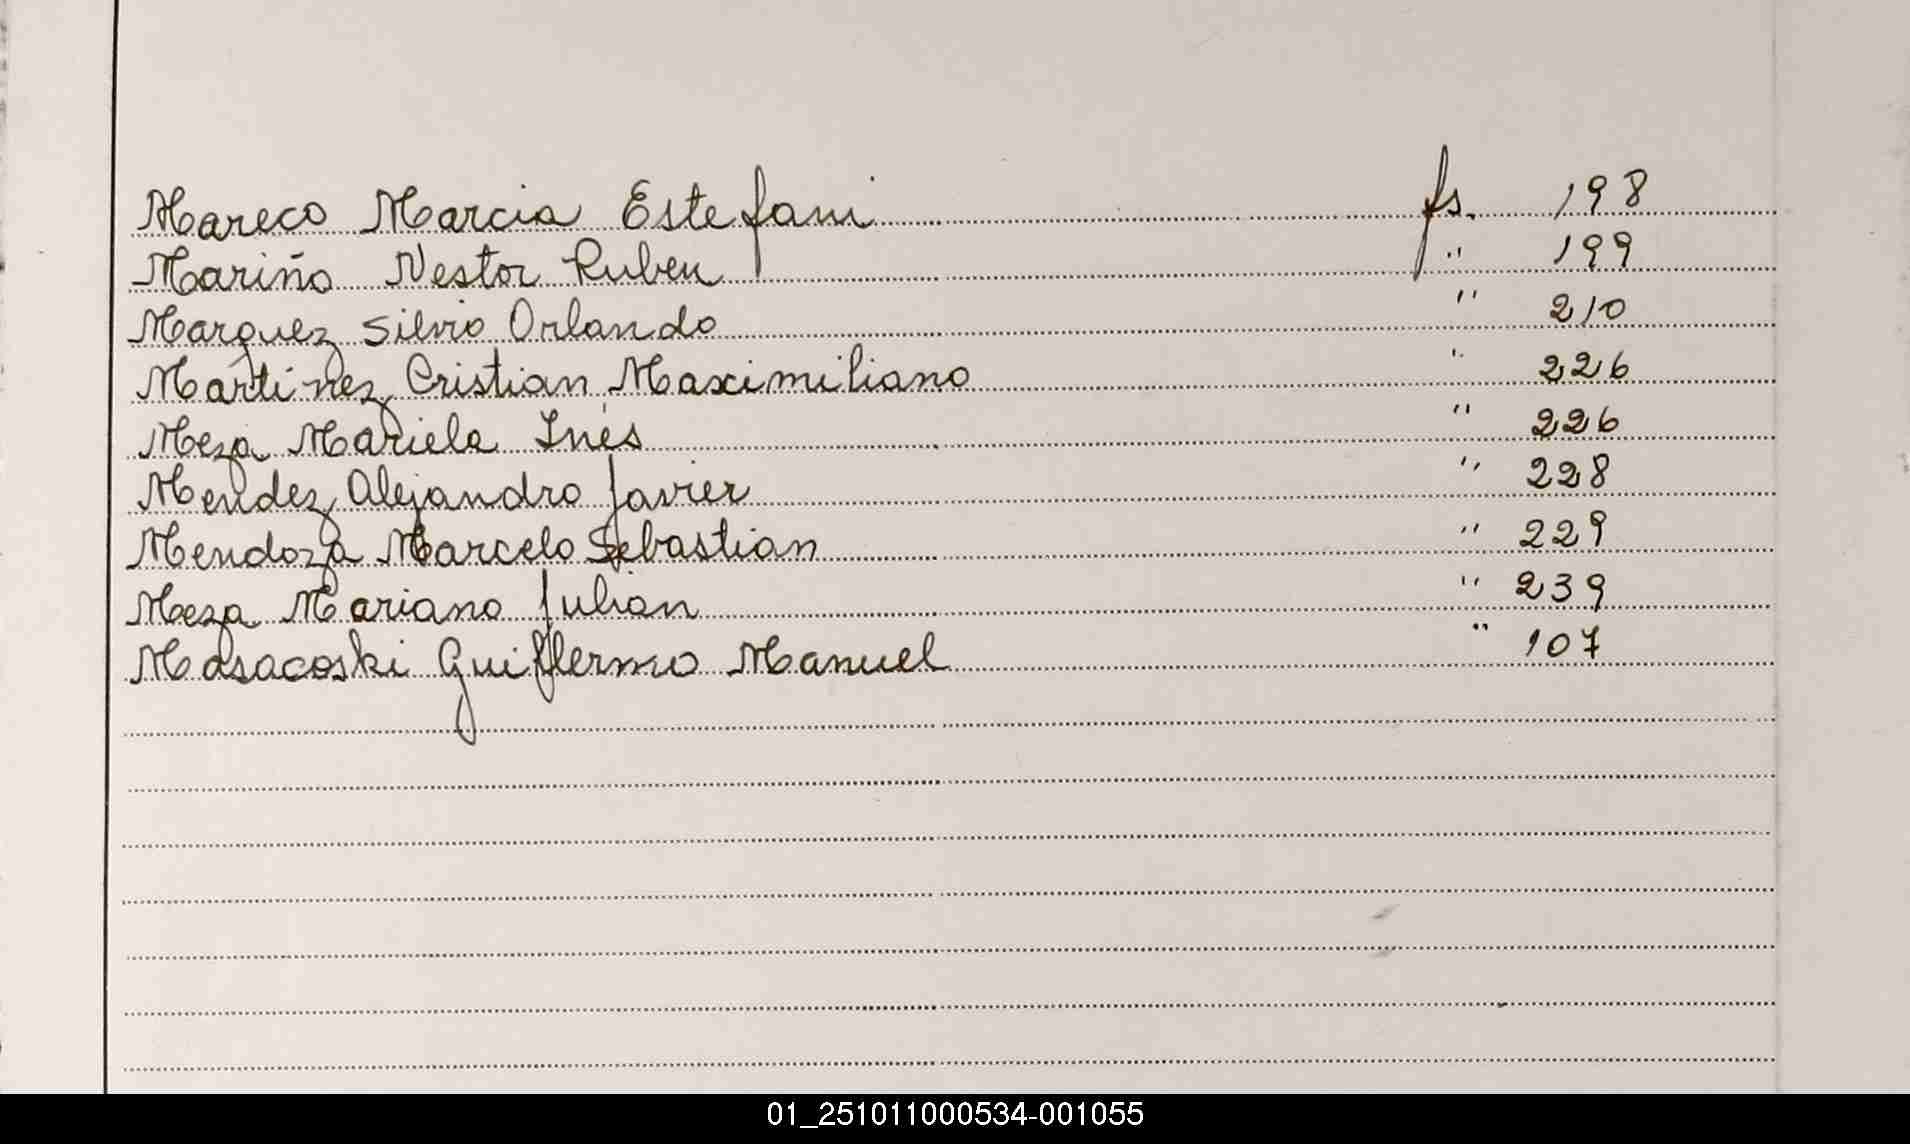 Mareco Marcia Estefani fs. 198
Mariño Nestor Ruben " 199
Marquez Silvio Orlando " 210
Martinez Cristian Maximiliano " 226
Meza Mariela Inés " 226
Mendez Alejandro Javier " 228
Mendoza Marcelo Sebastian " 229
Meza Mariano Julian " 239
Masacoski Guillermo Manuel " 107
01_251011000534-001055